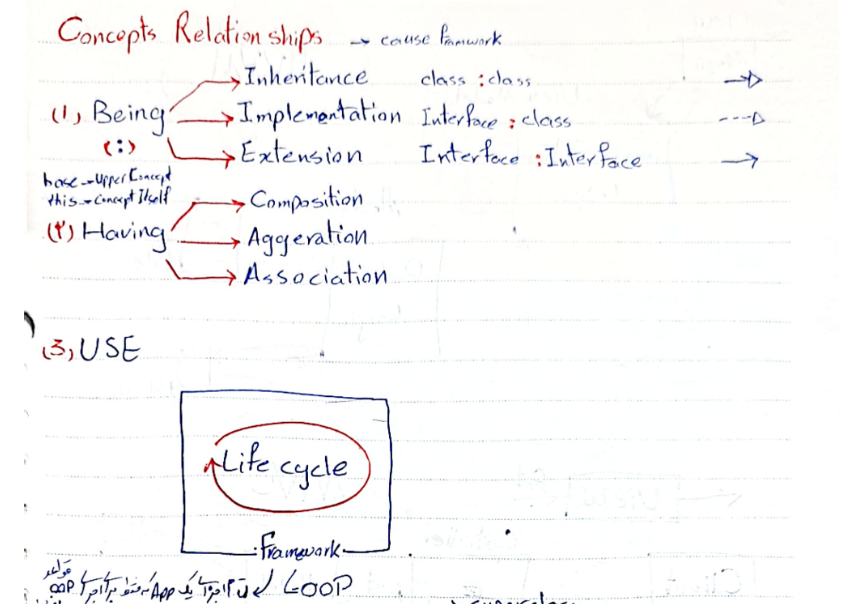 Concepts Relation ships → cause Framwork
→ Inheritance class : class
(1) Being → Implementation Interface : class
(:) → Extension Interface : Interface
base → Upper Concept
this → Concept Itself → Composition
(۲) Having → Aggeration
→ Association
(3) USE
Life cycle
Framework
قواعد
OOP App LOOP